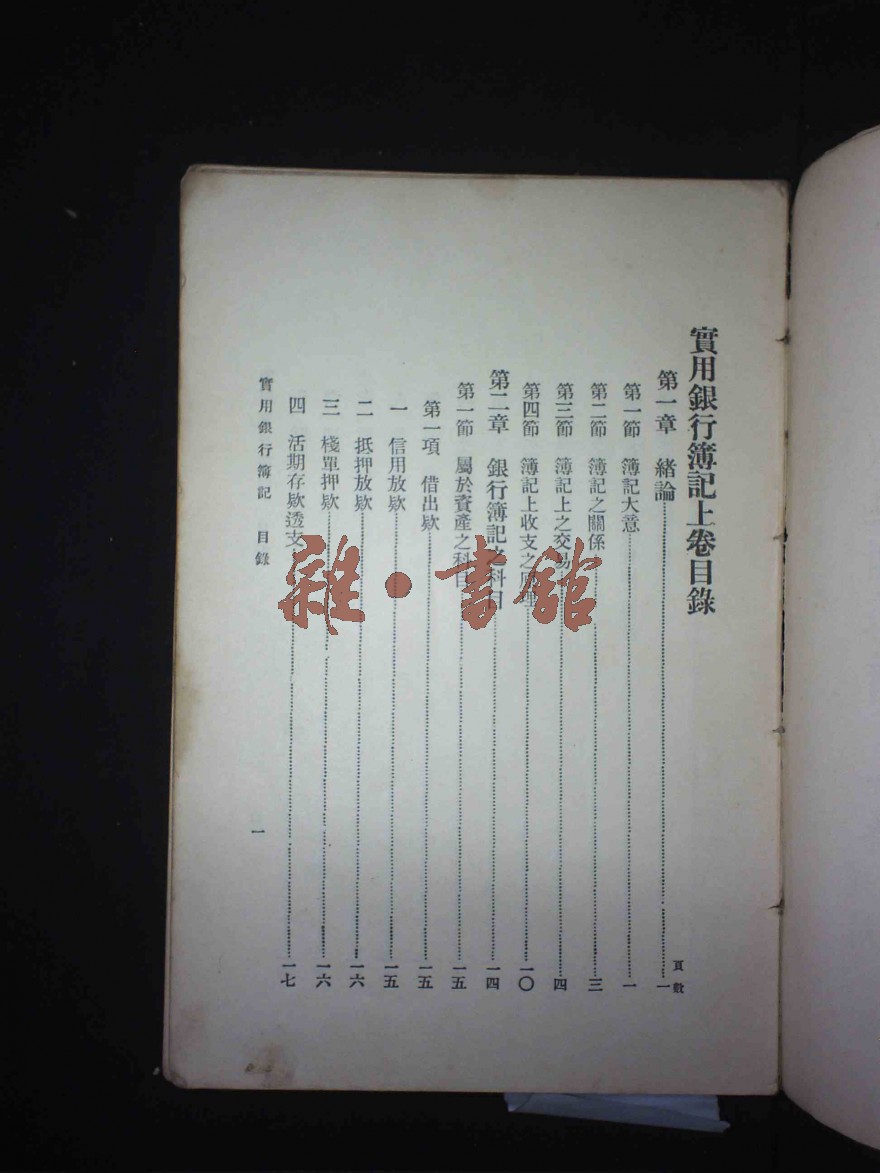 實用銀行簿記上卷目錄
頁數
第一章 緒論……一
第一節 簿記大意……一
第二節 簿記之關係……三
第三節 簿記上之交易……四
第四節 簿記上收支之原理……一〇
第二章 銀行簿記之科目……一四
第一節 屬於資產之科目……一五
第一項 借出欵……一五
一 信用放欵……一五
二 抵押放欵……一六
三 棧單押欵……一六
四 活期存欵透支……一七
實用銀行簿記 目錄
一
雜·書館